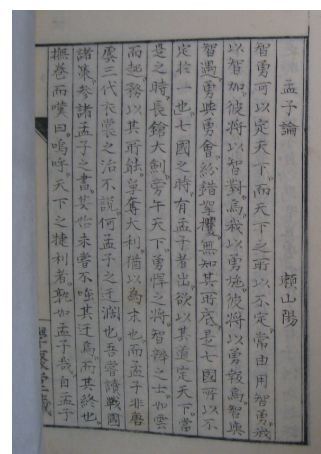 孟子論
賴山陽
智勇可以定天下。而天下之所以不定。常由用智勇。我
以智加彼。將以智對焉。我以勇施。彼將以勇報焉。智與
智遇。勇與勇會。紛錯拏攫。無知其所底。是七國所以不
定於一也。七國之時。有孟子者出。欲以其道定天下。當
是之時。長鎗大劍。旁午天下。勇悍之將。智辯之士。如雲
而起。務以其所能。爭奪大利。猶以為未也。而孟子非唐
虞三代衣裳之治不說。何孟子之迂濶也。吾嘗讀戰國
諸策。參諸孟子之書。其始未嘗不唾其迂焉。而其終也
撫卷而嘆曰。嗚呼。天下之捷利者。孰如孟子哉。自孟子